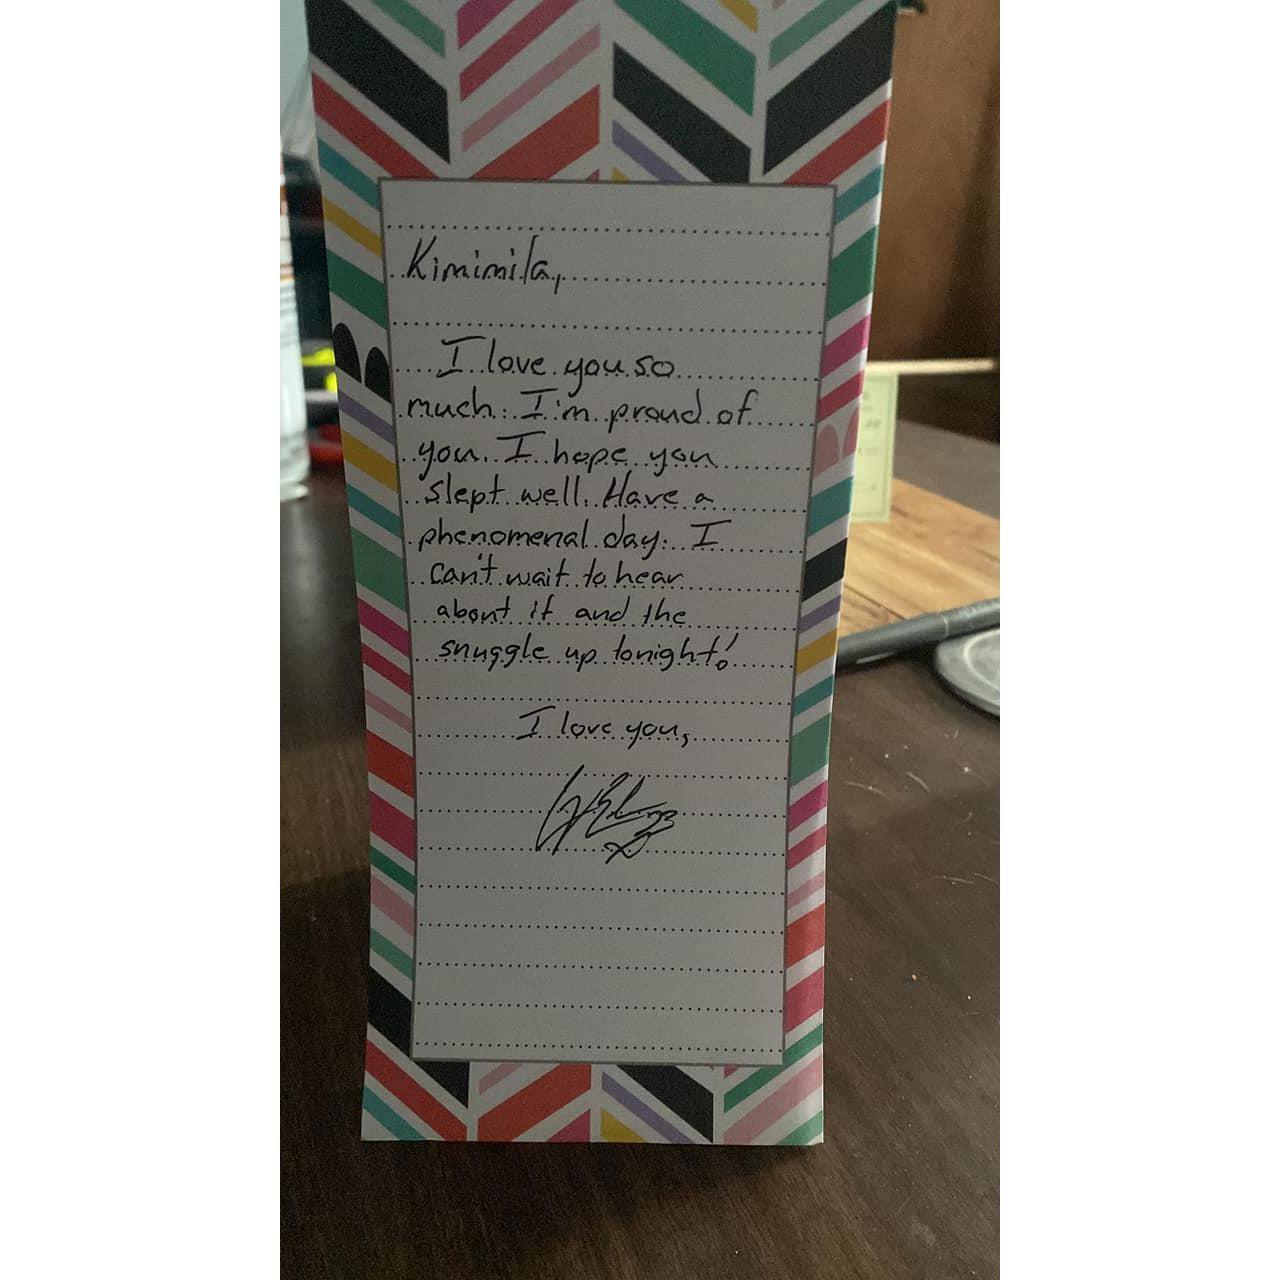 Kimimila,
I love you so
much. I'm proud of
you. I hope you
slept well. Have a
phenomenal day. I
can't wait to hear
about it and the
snuggle up tonight!
I love you,